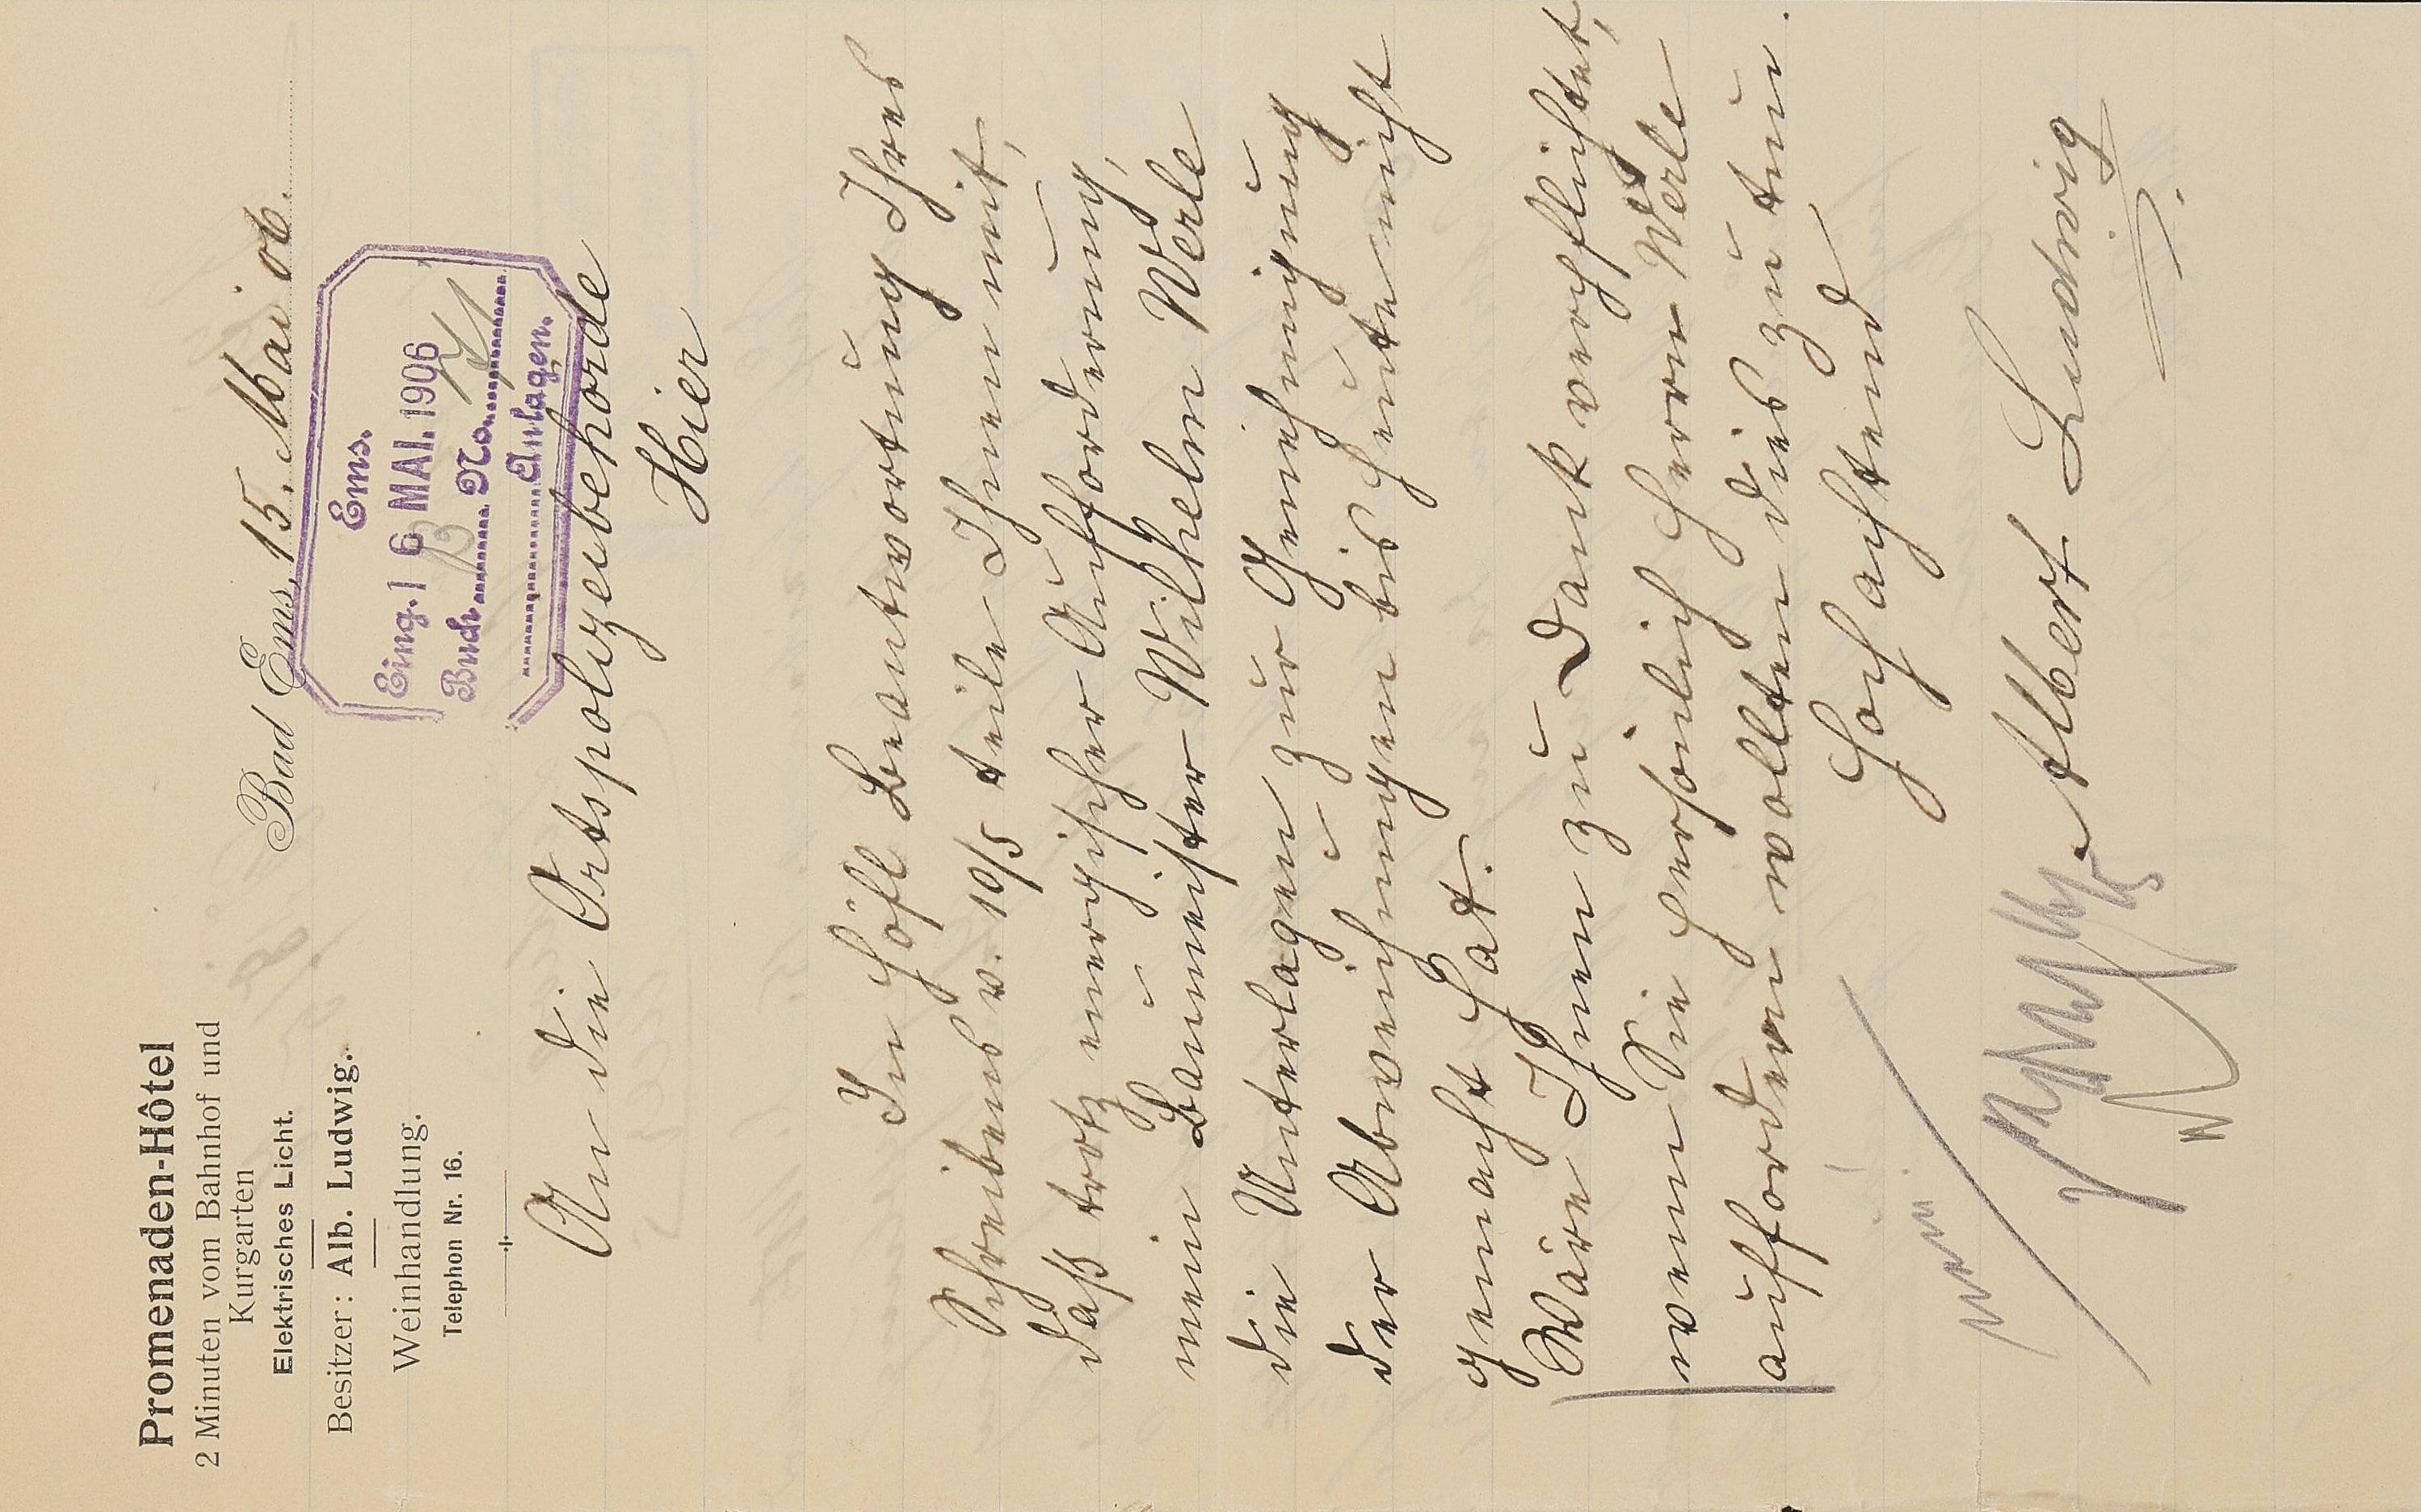 Promenaden-Hôtel
2 Minuten vom Bahnhof und
Kurgarten
Elektrisches Licht.
Besitzer: Alb. Ludwig.
Weinhandlung.
Telephon Nr. 16.
Bad Ems, 15. Mai 06.
Ems.
Eing. 16 MAI. 1906
Buch B No.
Anlagen.
An die Ortspolizeibehörde
Hier
In höfl Beantwortung Ihres
Schreibens v. 10/5 teile Ihnen mit,
daß trotz energischer Aufforderung,
mein Baumeister Wilhelm Werle
die Unterlagen zur Genehmigung
der Abweichungen bis heute nicht
gemacht hat.
Wäre Ihnen zu Dank verpflichtet,
wenn Sie persönlich Herrn Werle
auffordern wollten dies zu tun.
Hochachtend
Albert Ludwig